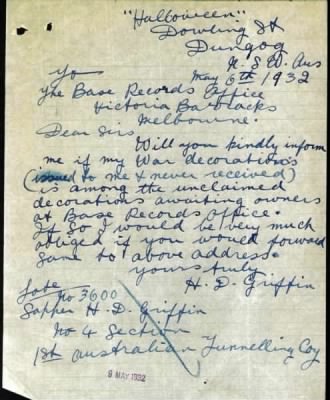 "Halloween"
Dowling St
Dungog
N.S.W. Aus
May 6th 1932
To
The Base Records Office
Victoria Barracks
Melbourne.
Dear Sirs
Will you kindly inform
me if my War decorations
(issued to me & never received)
is among the unclaimed
decorations awaiting owners
at Base Records office.
If so I would be very much
obliged if you would forward
same to above address.
Yours truly
H. D. Griffin
Late
No 3600
Sapper H. D. Griffin
No 4 Section
1st Australian Tunnelling Coy
9 MAY 1932